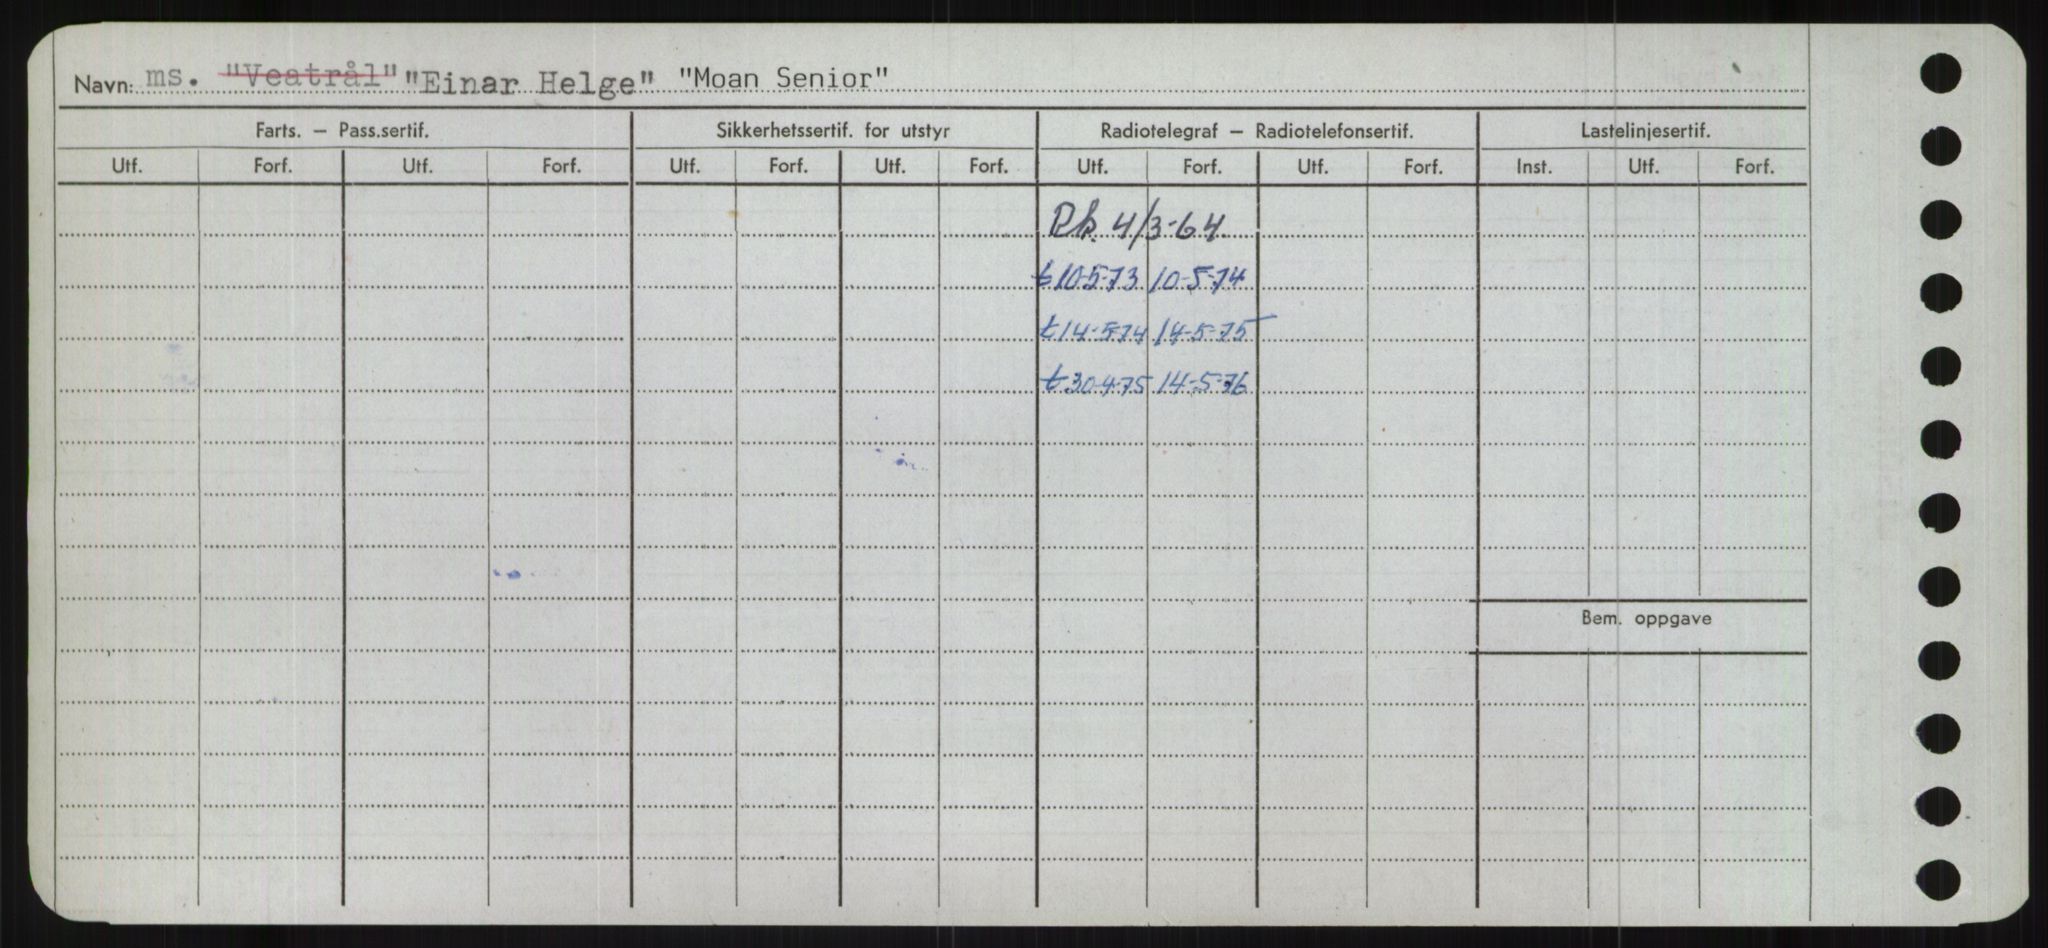 Navn: ms. "Veatrål" "Einar Helge" "Moan Senior"
Farts. — Pass.sertif. Sikkerhetssertif. for utstyr Radiotelegraf — Radiotelefonsertif. Lastelinjesertif.
Utf. Forf. Utf. Forf. Utf. Forf. Utf. Forf. Utf. Forf. Utf. Forf. Inst. Utf. Forf.
Rk. 4/3-64.
t 10-5-73 10-5-74
t 14-5-74 14-5-75
t 30-4-75 14-5-76
Bem. oppgave